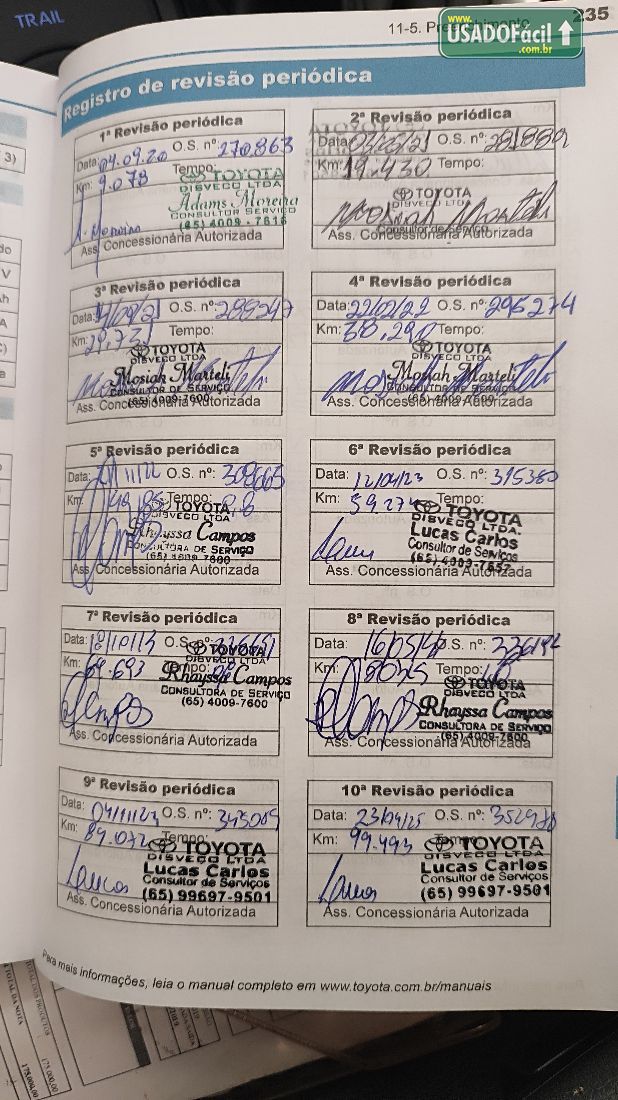 TRAIL
11-5. Preenchimento
235
www.
USADOFácil
.com.br
Registro de revisão periódica
1ª Revisão periódica
Data: 04.09.20 O.S. nº: 270.863
Km: 9.078 Tempo:
TOYOTA
DISVECO LTDA
Adams Moreira
CONSULTOR SERVIÇO
(65) 4009 - 7616
Ass. Concessionária Autorizada
2ª Revisão periódica
Data: O.S. nº:
Km: 19.430 Tempo:
TOYOTA
DISVECO LTDA
Consultor de Serviço
Ass. Concessionária Autorizada
3ª Revisão periódica
Data: O.S. nº: 288247
Km: 29.731 Tempo:
TOYOTA
DISVECO LTDA
Mosiah Marteli
CONSULTOR DE SERVIÇO
(65) 4009-7600
Ass. Concessionária Autorizada
4ª Revisão periódica
Data: 22/02/22 O.S. nº: 295274
Km: Tempo:
TOYOTA
DISVECO LTDA
Mosiah Marteli
CONSULTOR DE SERVIÇO
(65) 4009-7600
Ass. Concessionária Autorizada
5ª Revisão periódica
Data: O.S. nº:
Km: Tempo:
TOYOTA
DISVECO LTDA
Rhayssa Campos
CONSULTORA DE SERVIÇO
(65) 4009-7600
Ass. Concessionária Autorizada
6ª Revisão periódica
Data: 12/04/23 O.S. nº: 315380
Km: 59.274
TOYOTA
DISVECO LTDA.
Lucas Carlos
Consultor de Serviços
(65) 4009-7657
Ass. Concessionária Autorizada
7ª Revisão periódica
Data: O.S. nº:
Km: 69.693
TOYOTA
DISVECO LTDA
Rhayssa Campos
CONSULTORA DE SERVIÇO
(65) 4009-7600
Ass. Concessionária Autorizada
8ª Revisão periódica
Data: O.S. nº:
Km: Tempo:
TOYOTA
DISVECO LTDA
Rhayssa Campos
CONSULTORA DE SERVIÇO
(65) 4009-7600
Ass. Concessionária Autorizada
9ª Revisão periódica
Data: O.S. nº: 343009
Km: 89.072 Tempo:
TOYOTA
DISVECO LTDA
Lucas Carlos
Consultor de Serviços
(65) 99697-9501
Ass. Concessionária Autorizada
10ª Revisão periódica
Data: 23/04/25 O.S. nº:
Km: 99.493
TOYOTA
DISVECO LTDA
Lucas Carlos
Consultor de Serviços
(65) 99697-9501
Ass. Concessionária Autorizada
Para mais informações, leia o manual completo em www.toyota.com.br/manuais
TOTAL DA NOTA
175.000,00
TOTAL DOS PRODUTOS
175.000,00